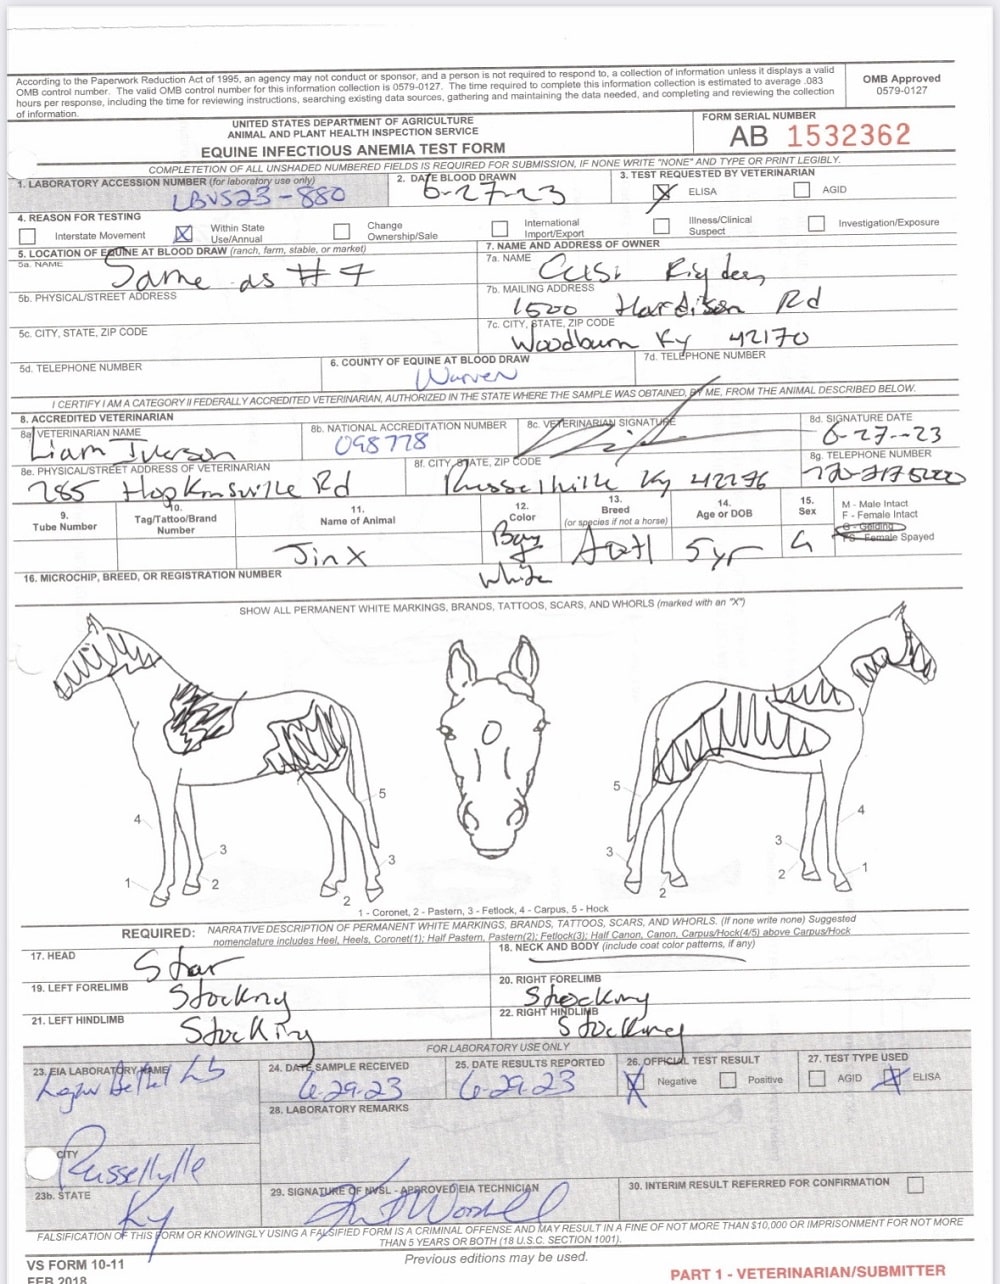 According to the Paperwork Reduction Act of 1995, an agency may not conduct or sponsor, and a person is not required to respond to, a collection of information unless it displays a valid
OMB control number. The valid OMB control number for this information collection is 0579-0127. The time required to complete this information collection is estimated to average .083
hours per response, including the time for reviewing instructions, searching existing data sources, gathering and maintaining the data needed, and completing and reviewing the collection
of information.
OMB Approved
0579-0127
UNITED STATES DEPARTMENT OF AGRICULTURE
ANIMAL AND PLANT HEALTH INSPECTION SERVICE
EQUINE INFECTIOUS ANEMIA TEST FORM
FORM SERIAL NUMBER
AB 1532362
COMPLETETION OF ALL UNSHADED NUMBERED FIELDS IS REQUIRED FOR SUBMISSION, IF NONE WRITE "NONE" AND TYPE OR PRINT LEGIBLY.
1. LABORATORY ACCESSION NUMBER (for laboratory use only)
LBVS23-880
2. DATE BLOOD DRAWN
6-27-23
3. TEST REQUESTED BY VETERINARIAN
X ELISA AGID
4. REASON FOR TESTING
Interstate Movement
X Within State
Use/Annual
Change
Ownership/Sale
International
Import/Export
Illness/Clinical
Suspect
Investigation/Exposure
5. LOCATION OF EQUINE AT BLOOD DRAW (ranch, farm, stable, or market)
5a. NAME
Same as #7
7. NAME AND ADDRESS OF OWNER
7a. NAME
5b. PHYSICAL/STREET ADDRESS
7b. MAILING ADDRESS
1500 Hardison Rd
5c. CITY, STATE, ZIP CODE
7c. CITY, STATE, ZIP CODE
Woodburn Ky 42170
5d. TELEPHONE NUMBER
6. COUNTY OF EQUINE AT BLOOD DRAW
Warren
7d. TELEPHONE NUMBER
I CERTIFY I AM A CATEGORY II FEDERALLY ACCREDITED VETERINARIAN, AUTHORIZED IN THE STATE WHERE THE SAMPLE WAS OBTAINED, BY ME, FROM THE ANIMAL DESCRIBED BELOW.
8. ACCREDITED VETERINARIAN
8a. VETERINARIAN NAME
Liam Iverson
8b. NATIONAL ACCREDITATION NUMBER
098778
8c. VETERINARIAN SIGNATURE
8d. SIGNATURE DATE
6-27-23
8e. PHYSICAL/STREET ADDRESS OF VETERINARIAN
785 Hopkinsville Rd
8f. CITY, STATE, ZIP CODE
Russellville Ky 42276
8g. TELEPHONE NUMBER
9.
Tube Number
10.
Tag/Tattoo/Brand
Number
11.
Name of Animal
Jinx
12.
Color
Bay
White
13.
Breed
(or species if not a horse)
14.
Age or DOB
5yr
15.
Sex
G
M - Male Intact
F - Female Intact
G - Gelding
FS - Female Spayed
16. MICROCHIP, BREED, OR REGISTRATION NUMBER
SHOW ALL PERMANENT WHITE MARKINGS, BRANDS, TATTOOS, SCARS, AND WHORLS (marked with an "X")
5 5
4 4
3 3
3 3
1 2 2 2 2 1
1 - Coronet, 2 - Pastern, 3 - Fetlock, 4 - Carpus, 5 - Hock
REQUIRED: NARRATIVE DESCRIPTION OF PERMANENT WHITE MARKINGS, BRANDS, TATTOOS, SCARS, AND WHORLS. (If none write none) Suggested
nomenclature includes Heel, Heels, Coronet(1); Half Pastern, Pastern(2); Fetlock(3); Half Canon, Canon, Carpus/Hock(4/5) above Carpus/Hock
17. HEAD
Star
18. NECK AND BODY (include coat color patterns, if any)
19. LEFT FORELIMB
Stocking
20. RIGHT FORELIMB
Stocking
21. LEFT HINDLIMB
Stocking
22. RIGHT HINDLIMB
Stocking
FOR LABORATORY USE ONLY
23. EIA LABORATORY NAME
24. DATE SAMPLE RECEIVED
6-29-23
25. DATE RESULTS REPORTED
6-29-23
26. OFFICIAL TEST RESULT
X Negative Positive
27. TEST TYPE USED
AGID X ELISA
28. LABORATORY REMARKS
CITY
23b. STATE
Ky
29. SIGNATURE OF NVSL - APPROVED EIA TECHNICIAN
30. INTERIM RESULT REFERRED FOR CONFIRMATION
FALSIFICATION OF THIS FORM OR KNOWINGLY USING A FALSIFIED FORM IS A CRIMINAL OFFENSE AND MAY RESULT IN A FINE OF NOT MORE THAN $10,000 OR IMPRISONMENT FOR NOT MORE
THAN 5 YEARS OR BOTH (18 U.S.C. SECTION 1001).
VS FORM 10-11
FEB 2018
Previous editions may be used.
PART 1 - VETERINARIAN/SUBMITTER